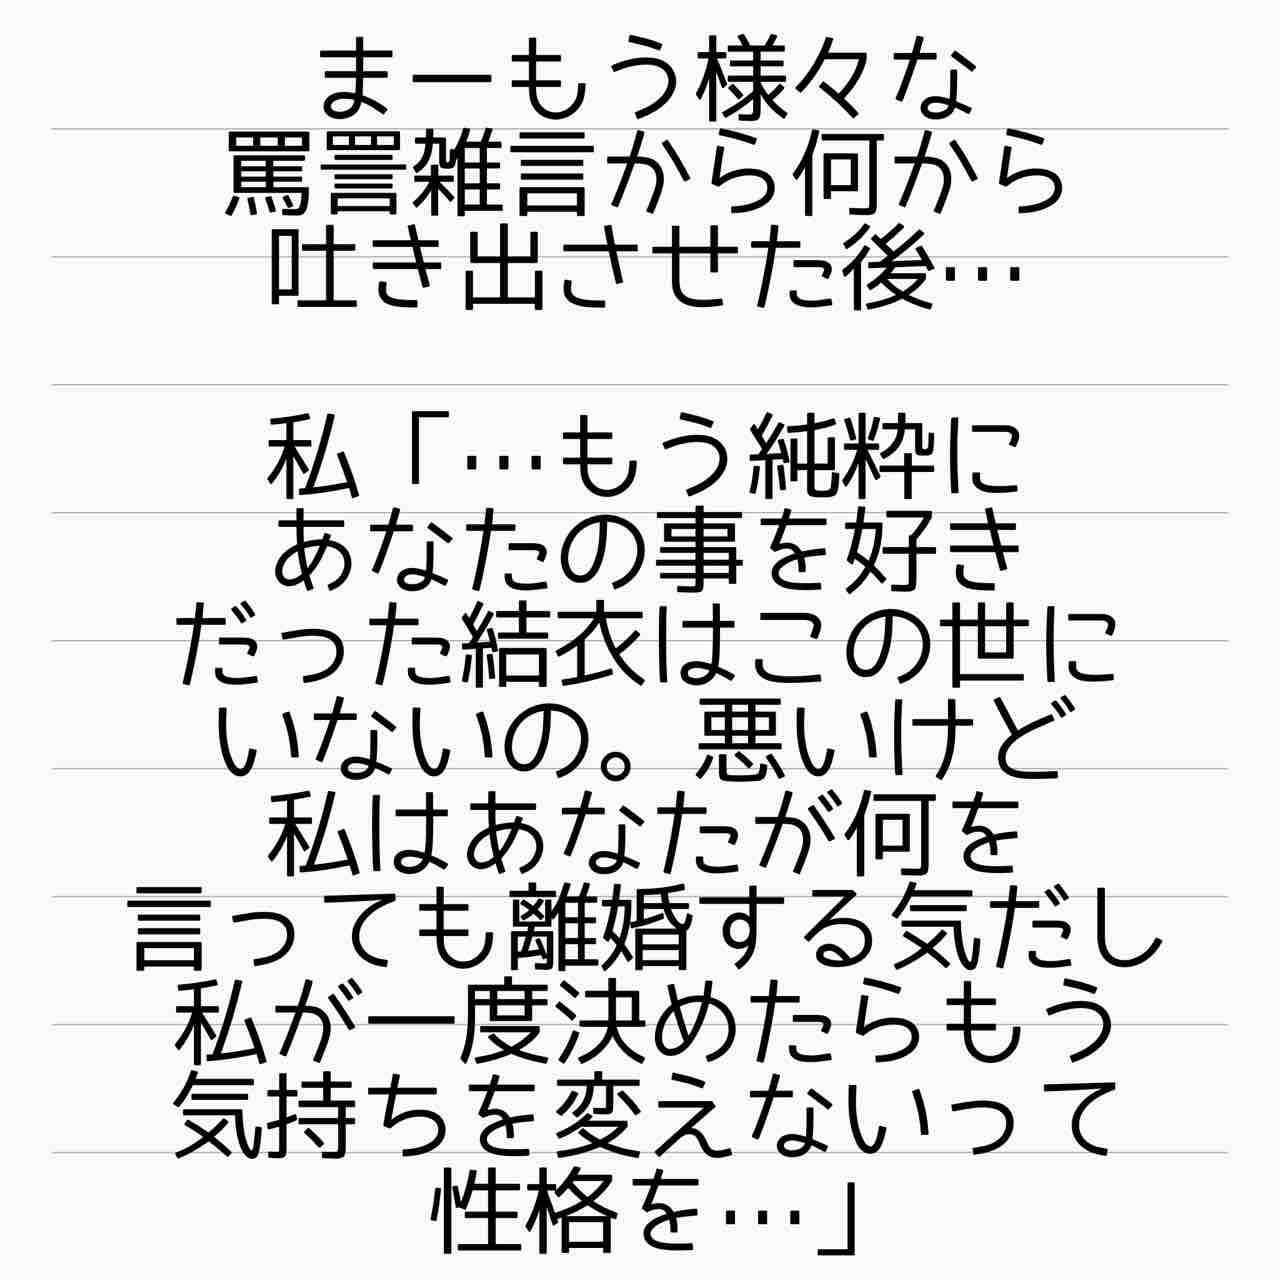 まーもう様々な
罵詈雑言から何から
吐き出させた後…
私「…もう純粋に
あなたの事を好き
だった結衣はこの世に
いないの。悪いけど
私はあなたが何を
言っても離婚する気だし
私が一度決めたらもう
気持ちを変えないって
性格を…」